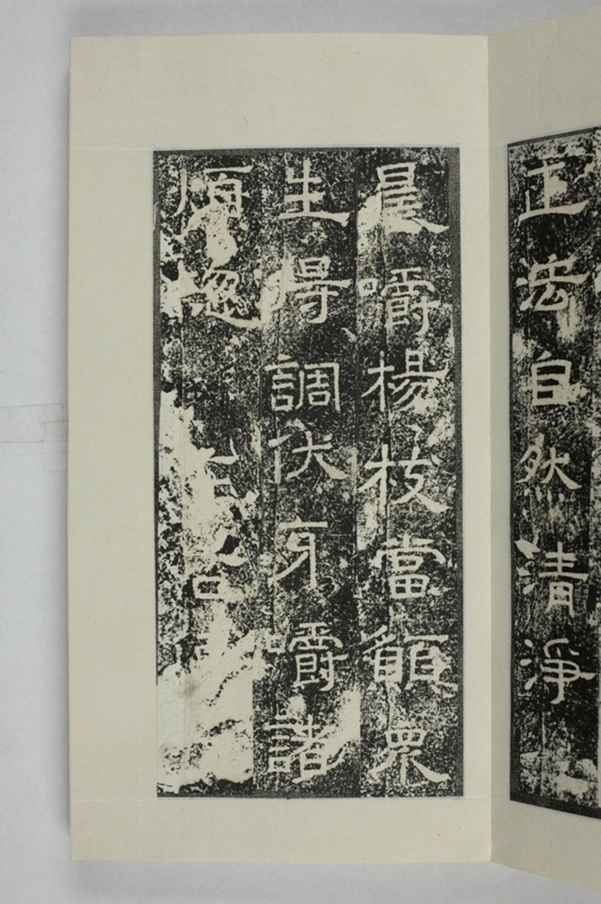 正法自然清淨
晨嚼楊枝當願眾
生得調伏牙嚼諸
煩惱